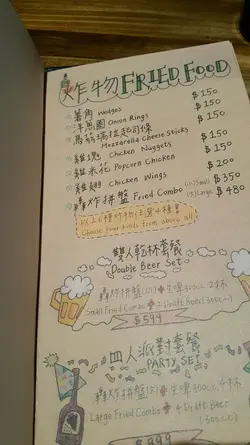 炸物 FRIED FOOD
薯角 Wedges $150
洋蔥圈 Onion Rings $150
馬茲瑞拉起司條 $150
Mozzarella Cheese Sticks
雞塊 Chicken Nuggets $150
雞米花 Popcorn Chicken $150
雞翅 Chicken Wings $200
轟炸拼盤 Fried Combo (小)Small $350
(大)Large $480
以上6種炸物任選4種
Choose four kinds from above all
雙人乾杯套餐
Double Beer Set
轟炸拼盤(小)+生啤300cc 2杯
Small Fried Combo + 2 Draft Beer(300cc)
$599
四人派對套餐
PARTY SET
轟炸拼盤(大)+生啤300cc 4杯
Large Fried Combo + 4 Draft Beer
(300cc)
$999